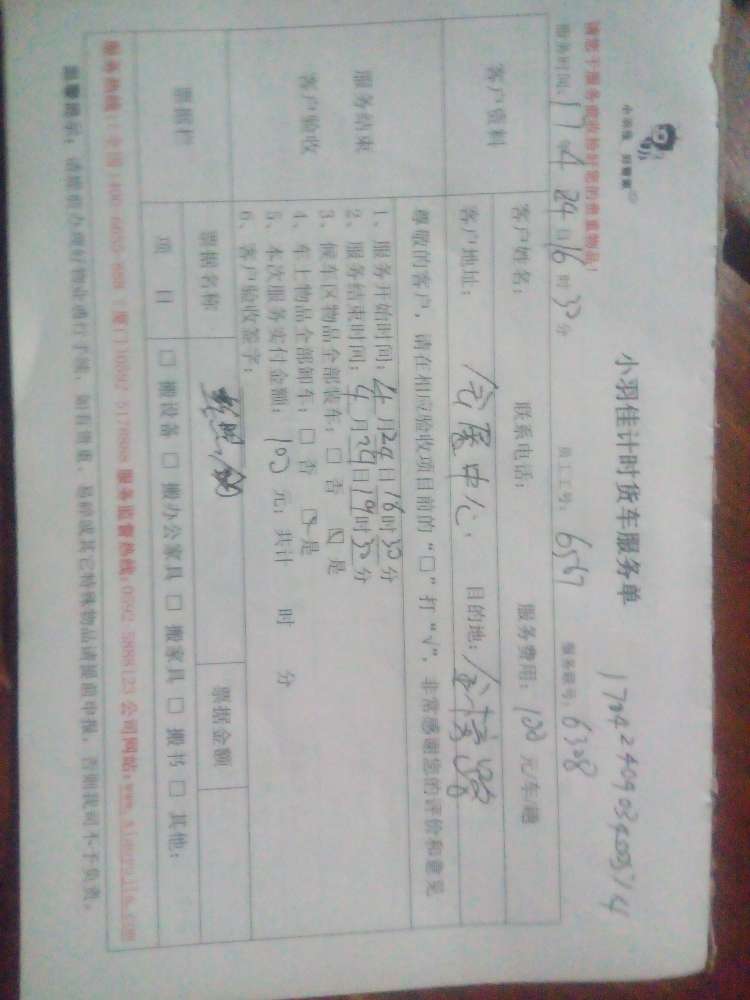 小羽佳计时货车服务单
请您于服务前收拾好您的贵重物品!
服务时间: 17年4月24日16时30分 员工工号: 6567 服务联号: 6328
客户资料
客户姓名: 联系电话: 服务费用: 100元/车/趟
客户地址: 中心. 目的地: 路
尊敬的客户,请在相应验收项目前的“□”打“√”,非常感谢您的评价和意见
服务结束
客户验收
1、服务开始时间: 4月24日16时30分
2、服务结束时间: 4月24日19时30分
3、候车区物品全部装车: □ 否 ☑ 是
4、车上物品全部卸车: □ 否 ☑ 是
5、本次服务实付金额: 100元; 共计 时 分
6、客户验收签字:
票据栏
票据名称 票据金额
项 目 □ 搬设备 □ 搬办公家具 □ 搬家具 □ 搬书 □ 其他:
温馨提示: 请提前办理好物业通行手续, 如有贵重、易碎或其它特殊物品请提前申报, 否则我司不予负责。